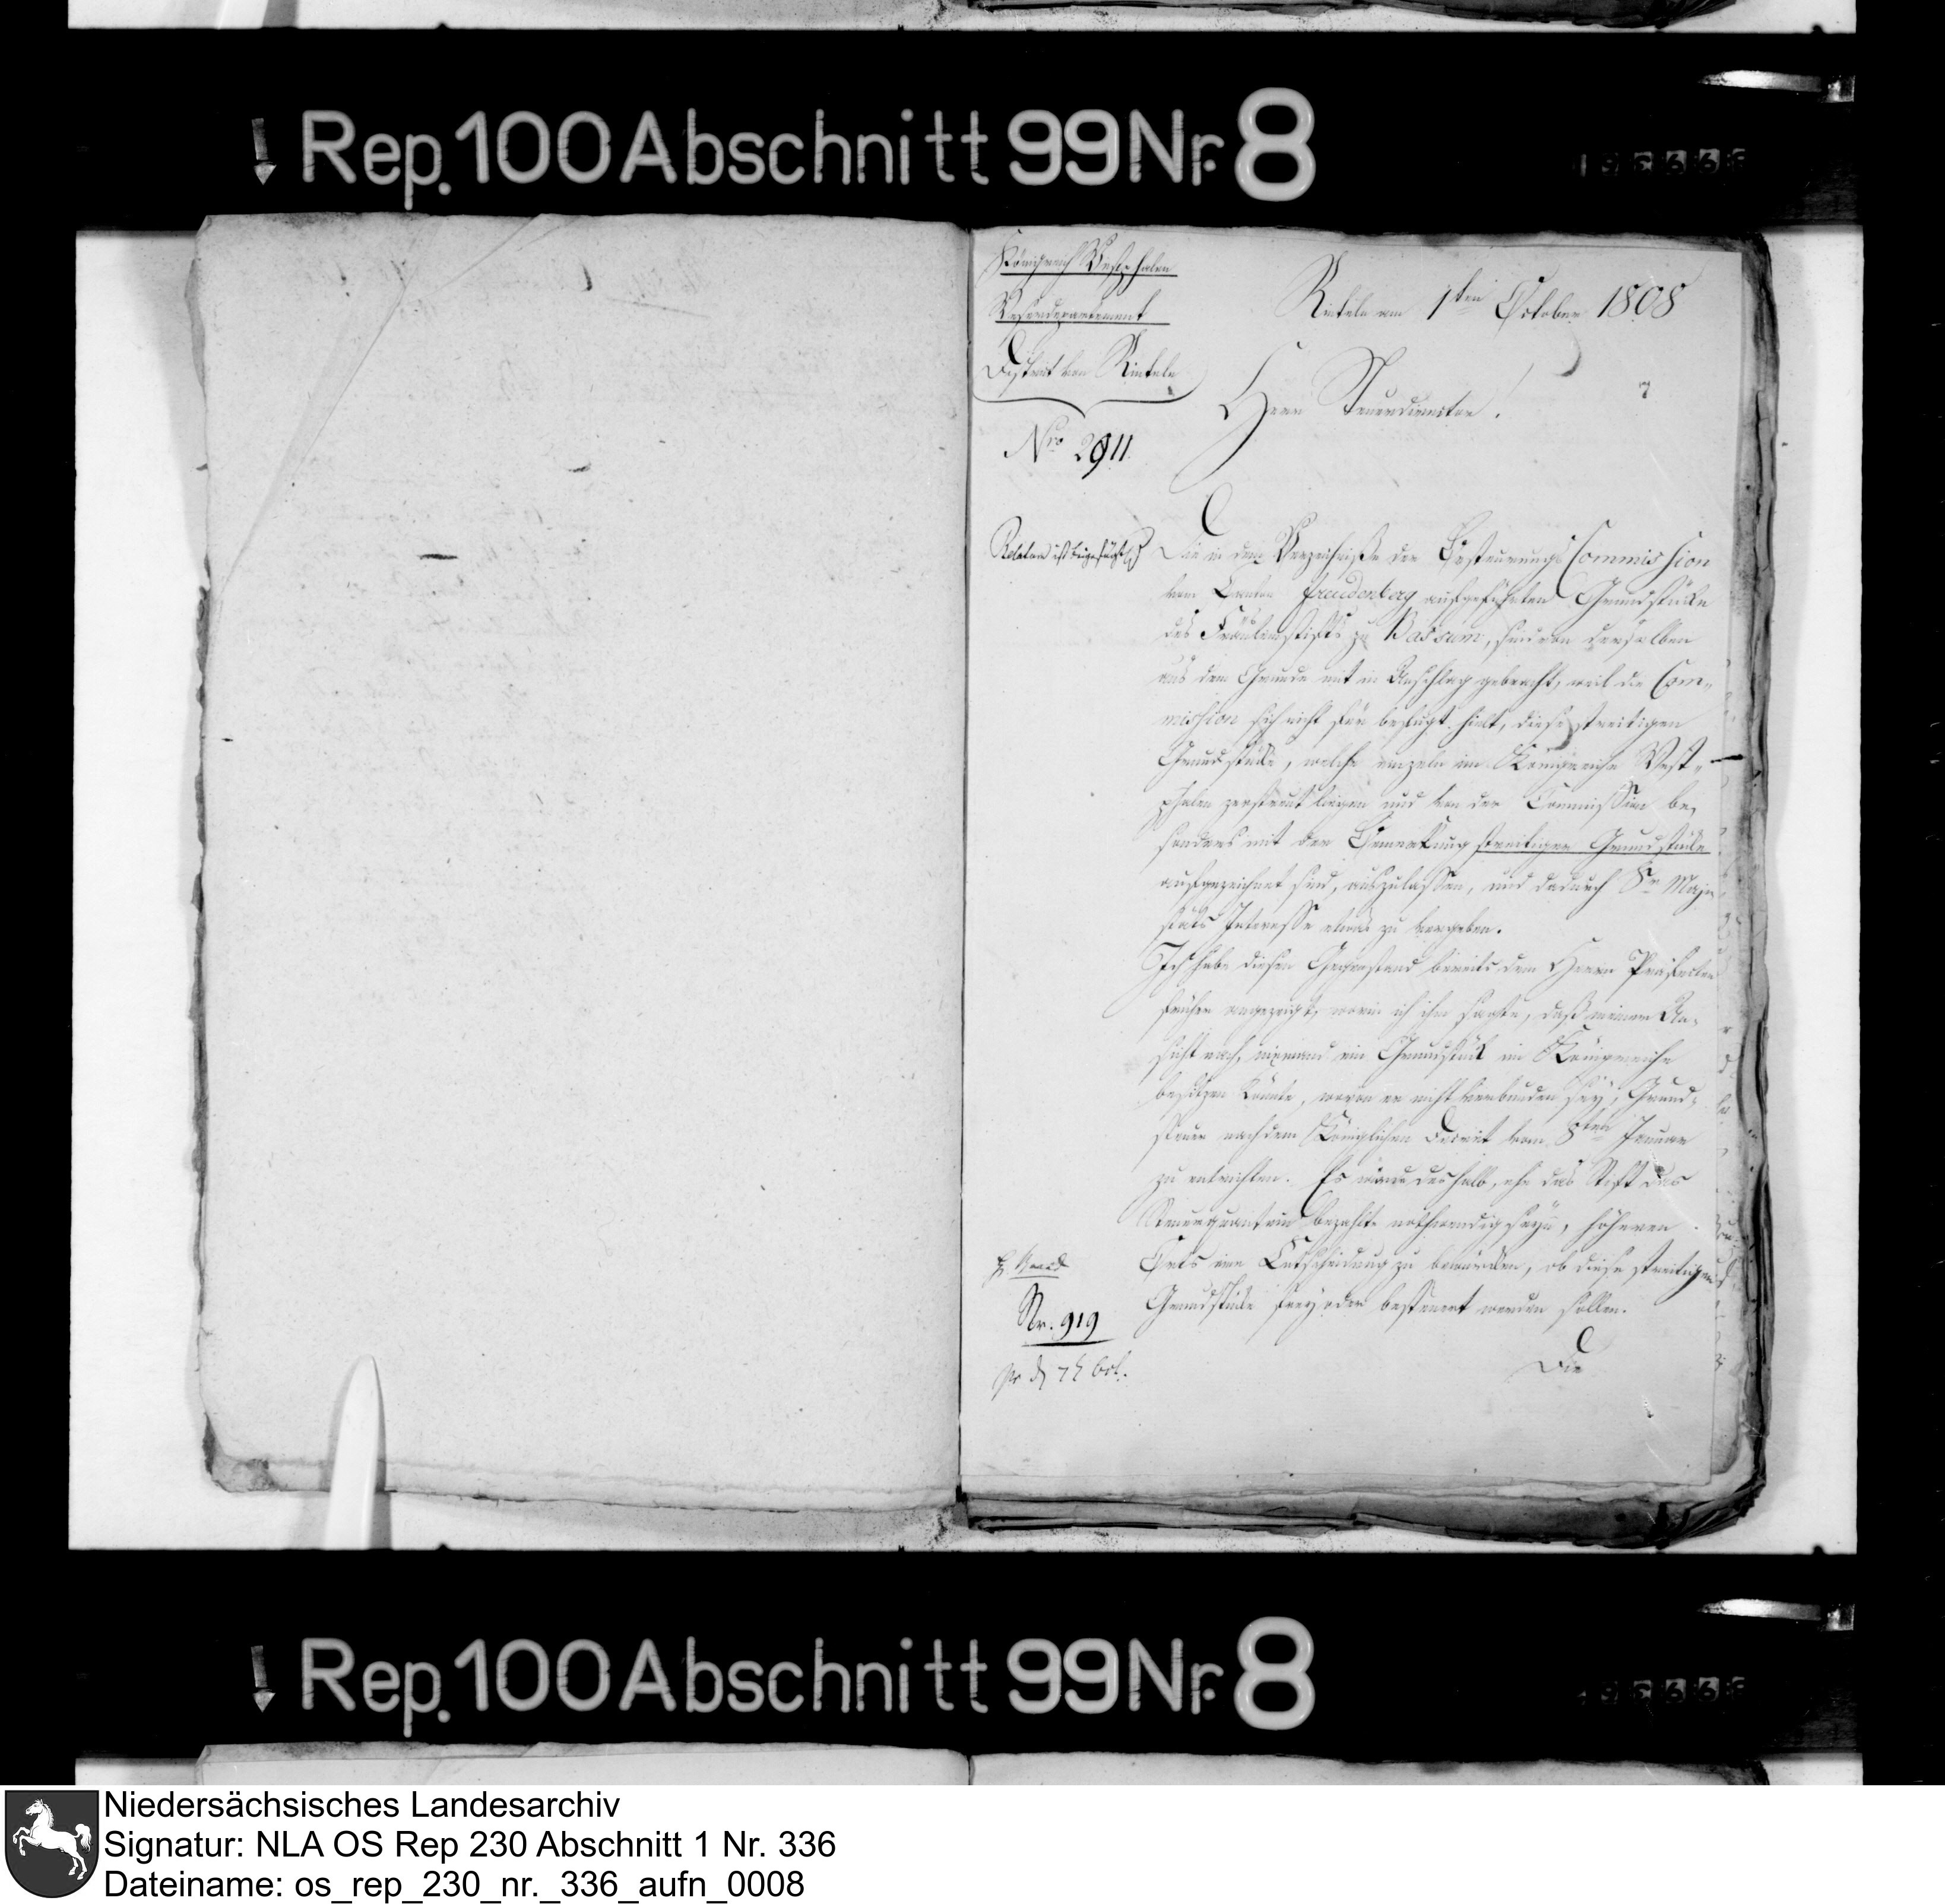 Rep. 100 Abschnitt 99 Nr. 8
Königreich Westphalen
Weserdepartement
District von Rinteln
Nro 2911.
Rinteln am 1ten October 1808
7
Herr Steuerdirector!
Die in dem Verzeichniße der Besteuerungs Commission
vom Canton Freudenberg aufgeführten Grundstücke
des Fräuleinstifts zu Bassum, sind von derselben
aus dem Grunde mit in Anschlag gebracht, weil die Com-
mission sich nicht für befugt hielt, diese streitigen
Grundstücke, welche einzeln im Königreiche West-
phalen zerstreut liegen und von der Commission be-
sonders mit der Bemerkung streitiger Grundstücke
aufgezeichnet sind, auszulassen, und dadurch Sr Maje-
stäts Interesse etwas zu vergeben.
Ich habe diesen Gegenstand bereits dem Herrn Präfecten
früher angezeigt, worin ich ihm sagte, daß meiner An-
sicht nach, niemand ein Grundstück im Königreiche
besitzen könnte, wovon er nicht verbunden sey, Grund-
steuer nach dem Königlichen Decret vom 8ten Januar
zu entrichten. Es würde deshalb, ehe das Stift das
Steuerquantum bezahlt, nothwendig seyn, höheren
Orts eine Entscheidung zu bewürken, ob diese streitigen
Grundstücke frey oder besteuert werden sollen.
Die
Nr. 919
7 Oct.
Rep. 100 Abschnitt 99 Nr. 8
Niedersächsisches Landesarchiv
Signatur: NLA OS Rep 230 Abschnitt 1 Nr. 336
Dateiname: os_rep_230_nr._336_aufn_0008